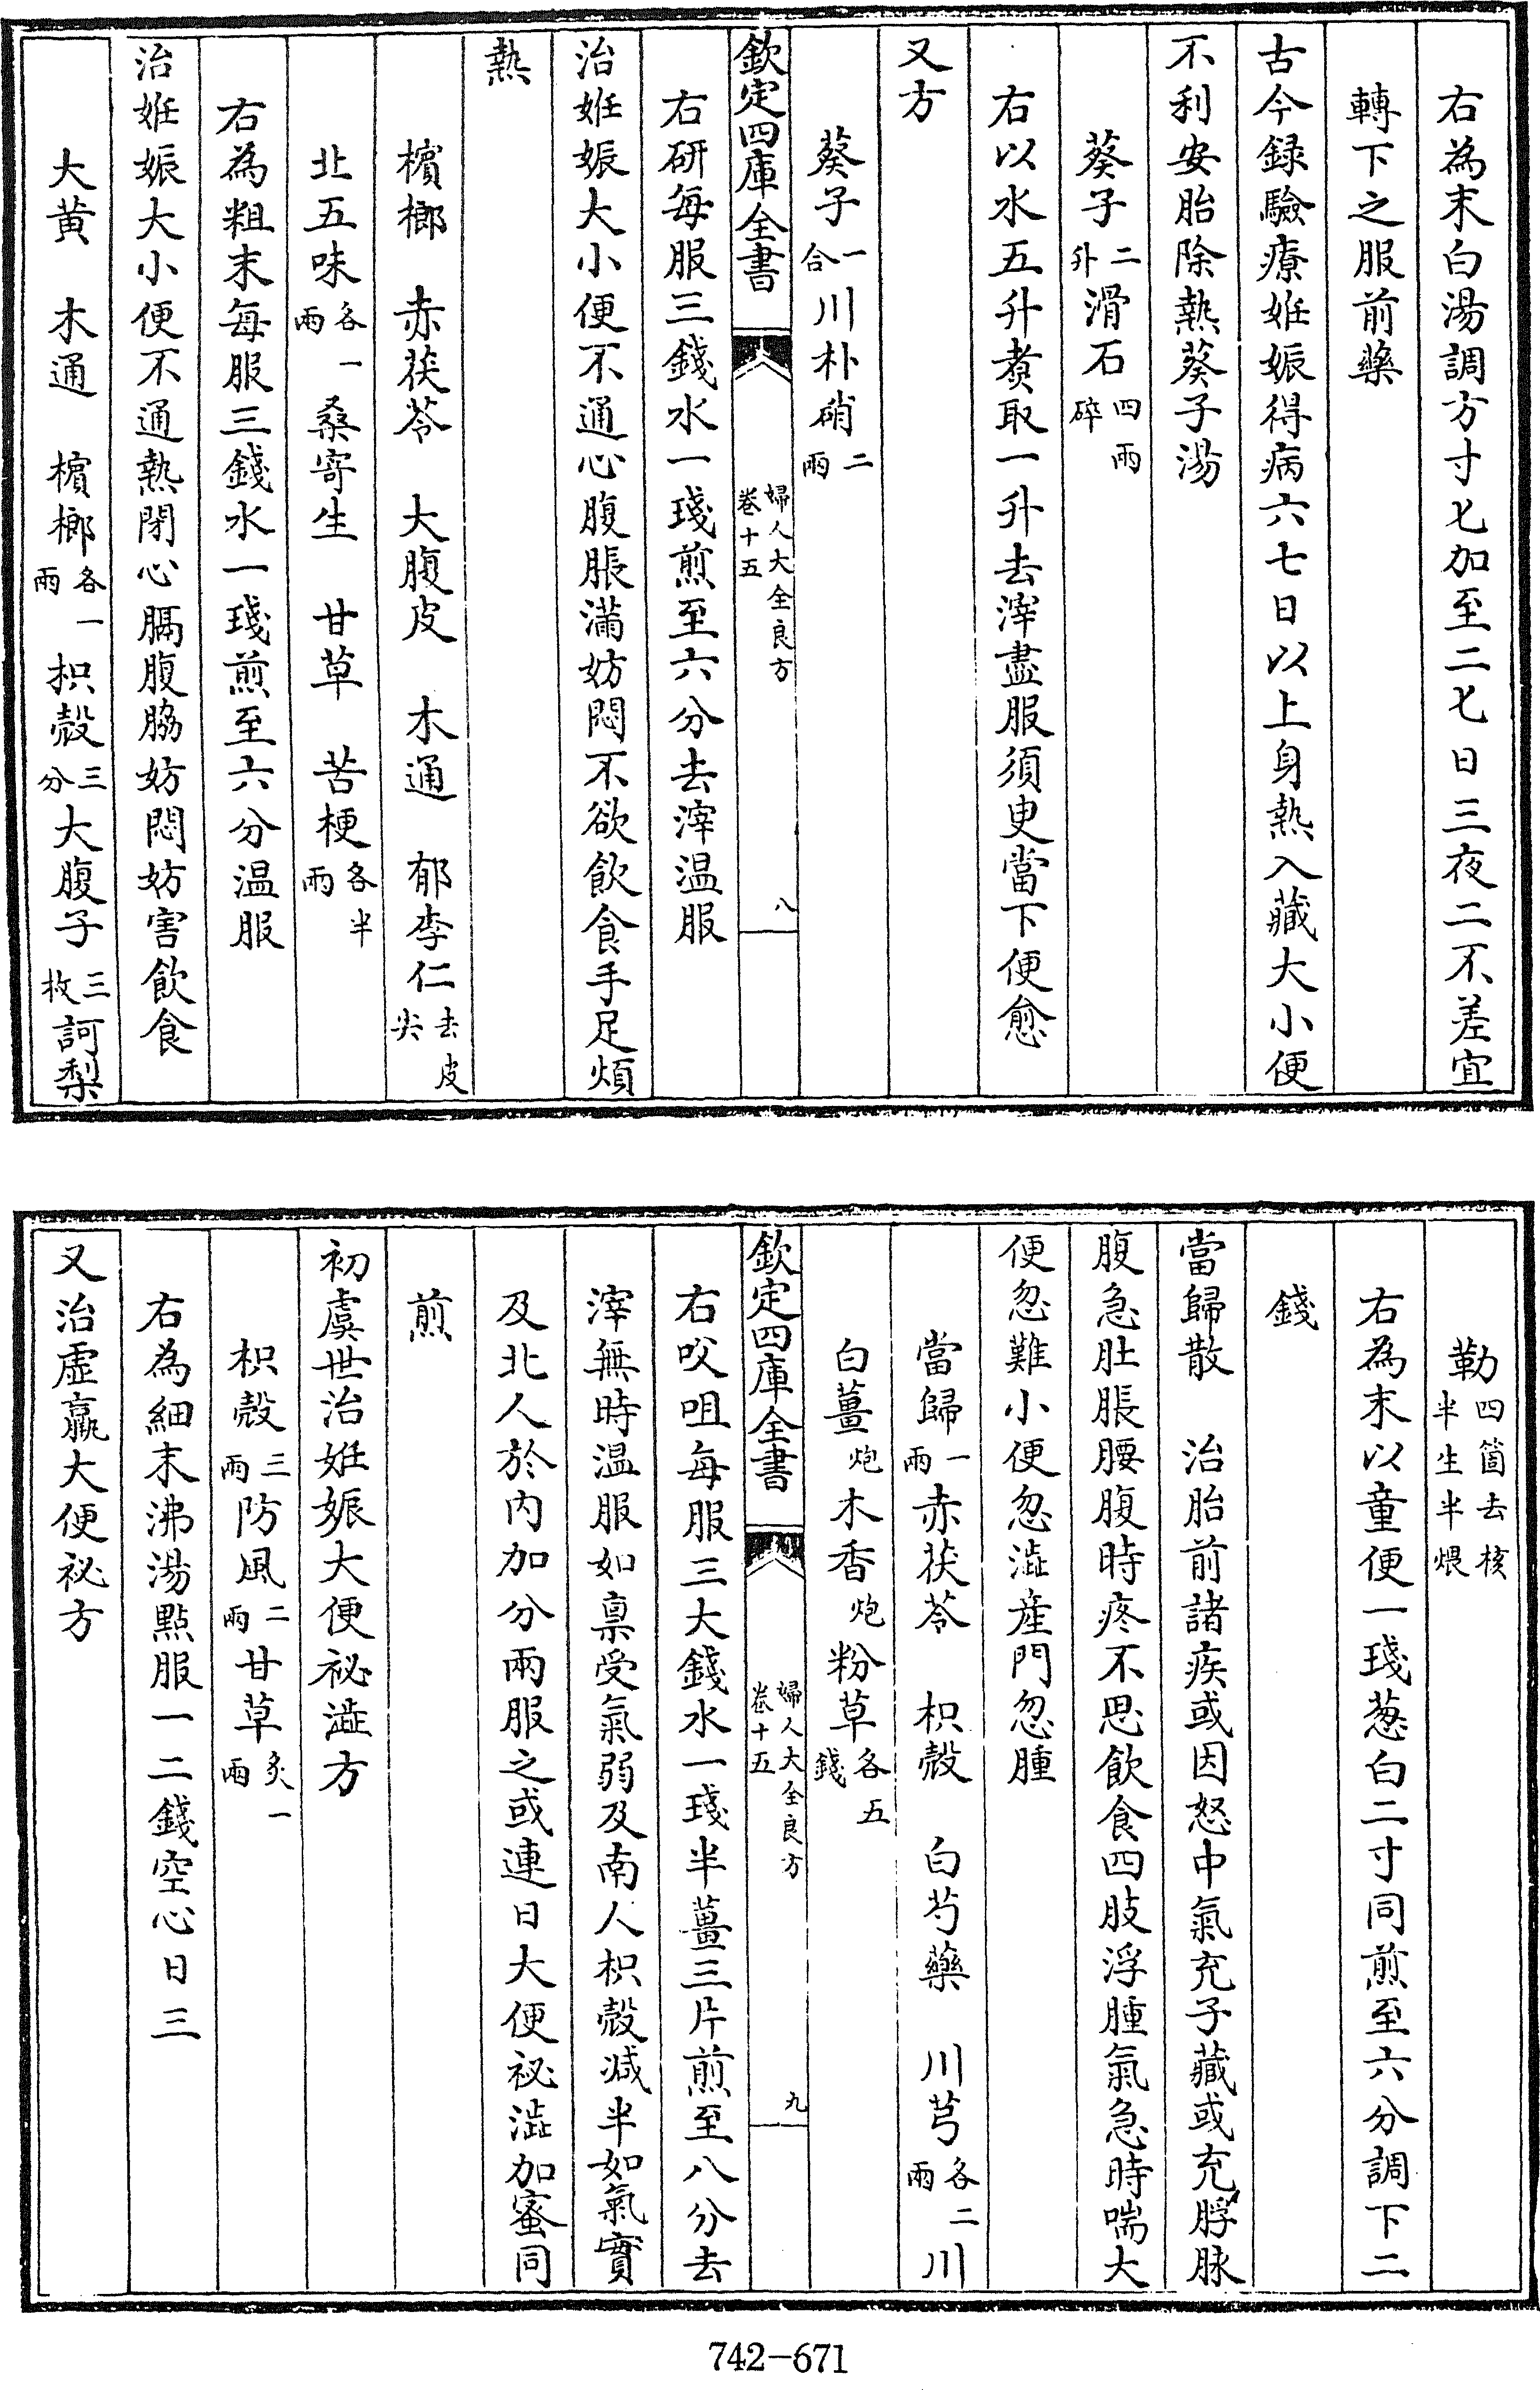 右為末白湯調方寸匕加至二匕日三夜二不差宜
轉下之服前藥
古今録驗療姙娠得病六七日以上身熱入藏大小便
不利安胎除熱葵子湯
葵子二升滑石四兩碎
右以水五升煑取一升去滓盡服須臾當下便愈
又方
葵子一合川朴硝二兩
欽定四庫全書
婦人大全良方
卷十五
八
右研每服三錢水一琖煎至六分去滓温服
治姙娠大小便不通心腹脹滿妨悶不欲飲食手足煩
熱
檳榔　赤茯苓　大腹皮　木通　郁李仁去皮尖
北五味各一兩桑寄生　甘草　苦梗各半兩
右為粗末每服三錢水一琖煎至六分温服
治姙娠大小便不通熱閉心膈腹脇妨悶妨害飲食
大黄　木通　檳榔各一兩枳殼三分大腹子三枚訶梨
勒四箇去核半生半煨
右為末以童便一琖葱白二寸同煎至六分調下二
錢
當歸散　治胎前諸疾或因怒中氣充子藏或充脬脉
腹急肚脹腰腹時疼不思飲食四肢浮腫氣急時喘大
便忽難小便忽澁産門忽腫
當歸一兩赤茯苓　枳殼　白芍藥　川芎各二兩川
白薑炮木香炮粉草各五錢
欽定四庫全書
婦人大全良方
卷十五
九
右㕮咀每服三大錢水一琖半薑三片煎至八分去
滓無時温服如禀受氣弱及南人枳殼減半如氣實
及北人於内加分兩服之或連日大便祕澁加蜜同
煎
初虞世治姙娠大便祕澁方
枳殼三兩防風二兩甘草炙一兩
右為細末沸湯點服一二錢空心日三
又治虛羸大便祕方
742-671